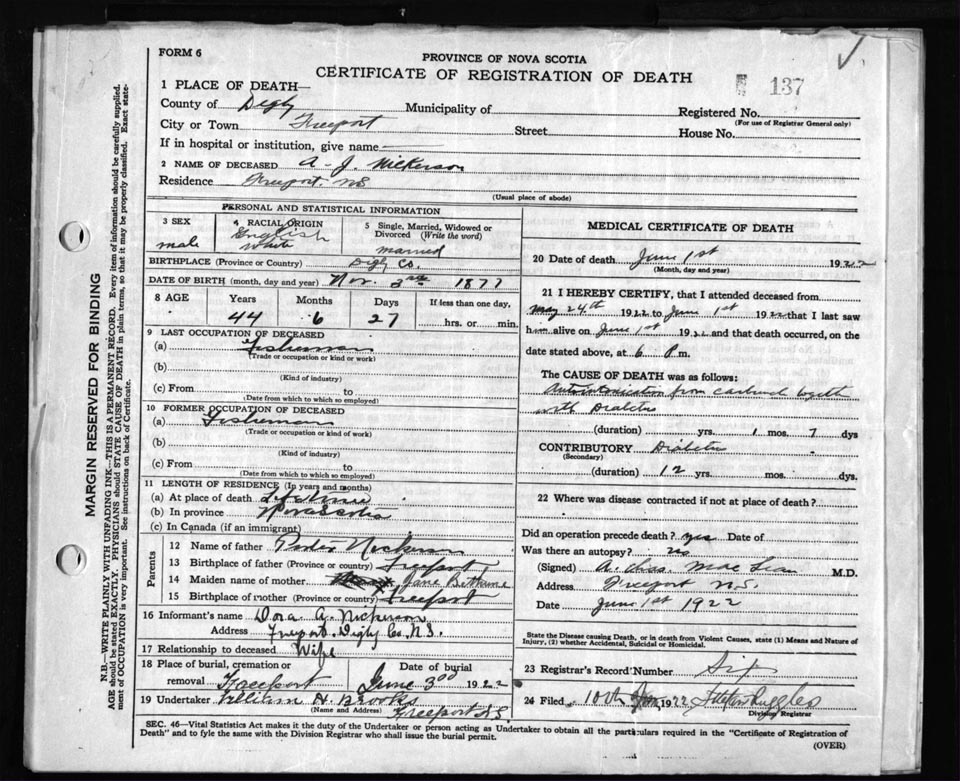 FORM 6
PROVINCE OF NOVA SCOTIA
CERTIFICATE OF REGISTRATION OF DEATH
137
1 PLACE OF DEATH—
County of Digby Municipality of Registered No.
(For use of Registrar General only)
City or Town Freeport Street House No.
If in hospital or institution, give name
2 NAME OF DECEASED A. J. Nickerson
Residence Freeport. NS
(Usual place of abode)
PERSONAL AND STATISTICAL INFORMATION
3 SEX male
4 RACIAL ORIGIN English White
5 Single, Married, Widowed or Divorced (Write the word) married
BIRTHPLACE (Province or Country) Digby Co.
DATE OF BIRTH (month, day and year) Nov. 3rd 1877
8 AGE Years Months Days If less than one day,
44 6 27 hrs. or min.
9 LAST OCCUPATION OF DECEASED
(a) Fisherman
(Trade or occupation or kind or work)
(b)
(Kind of industry)
(c) From to
(Date from which to which so employed)
10 FORMER OCCUPATION OF DECEASED
(a) Fisherman
(Trade or occupation or kind of work)
(b)
(Kind of industry)
(c) From to
(Date from which to which so employed)
11 LENGTH OF RESIDENCE (In years and months)
(a) At place of death
(b) In province Nova Scotia
(c) In Canada (if an immigrant)
Parents
12 Name of father Nickerson
13 Birthplace of father (Province or country) Freeport
14 Maiden name of mother Jane
15 Birthplace of mother (Province or country) Freeport
16 Informant's name Dora A. Nickerson
Address Freeport. Digby Co. N.S.
17 Relationship to deceased Wife
18 Place of burial, cremation or removal Freeport
Date of burial June 3rd 1922
19 Undertaker William H. Brooks
(Name and Address) Freeport N.S.
MEDICAL CERTIFICATE OF DEATH
20 Date of death June 1st 1922
(Month, day and year)
21 I HEREBY CERTIFY, that I attended deceased from
May 24th 1922 to June 1st 1922 that I last saw
him alive on June 1st 1922 and that death occurred, on
the date stated above, at 6 P.m.
The CAUSE OF DEATH was as follows:
Autointoxication from
with Diabetes
(duration) yrs. 1 mos. 7 dys
CONTRIBUTORY Diabetes
(Secondary)
(duration) 12 yrs. mos. dys.
22 Where was disease contracted if not at place of death?
Did an operation precede death? yes Date of
Was there an autopsy? no
(Signed) A. Mac Lean M.D.
Address Freeport N.S.
Date June 1st 1922
State the Disease causing Death, or in death from Violent Causes, state (1) Means and Nature of
Injury, (2) whether Accidental, Suicidal or Homicidal.
23 Registrar's Record Number Six
24 Filed 10th 1922 Ruggles
Division Registrar
SEC. 46—Vital Statistics Act makes it the duty of the Undertaker or person acting as Undertaker to obtain all the particulars required in the "Certificate of Registration of
Death" and to fyle the same with the Division Registrar who shall issue the burial permit.
(OVER)
MARGIN RESERVED FOR BINDING
N.B.—WRITE PLAINLY WITH UNFADING INK—THIS IS A PERMANENT RECORD. Every item of information should be carefully supplied.
AGE should be stated EXACTLY. PHYSICIANS should STATE CAUSE OF DEATH in plain terms, so that it may be properly classified. Exact state-
ment of OCCUPATION is very important. See instructions on back of Certificate.